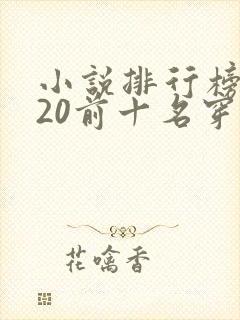 小説排行榜
20前十名穿
花噙香